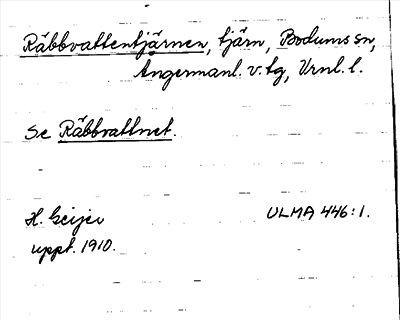 Räbbvattentjärnen, tjärn, Bodums sn,
Ångermanl. v. tg, Vrnl. l.
Se Räbbvattnet.
H. Geijer ULMA 446:1.
uppt. 1910.